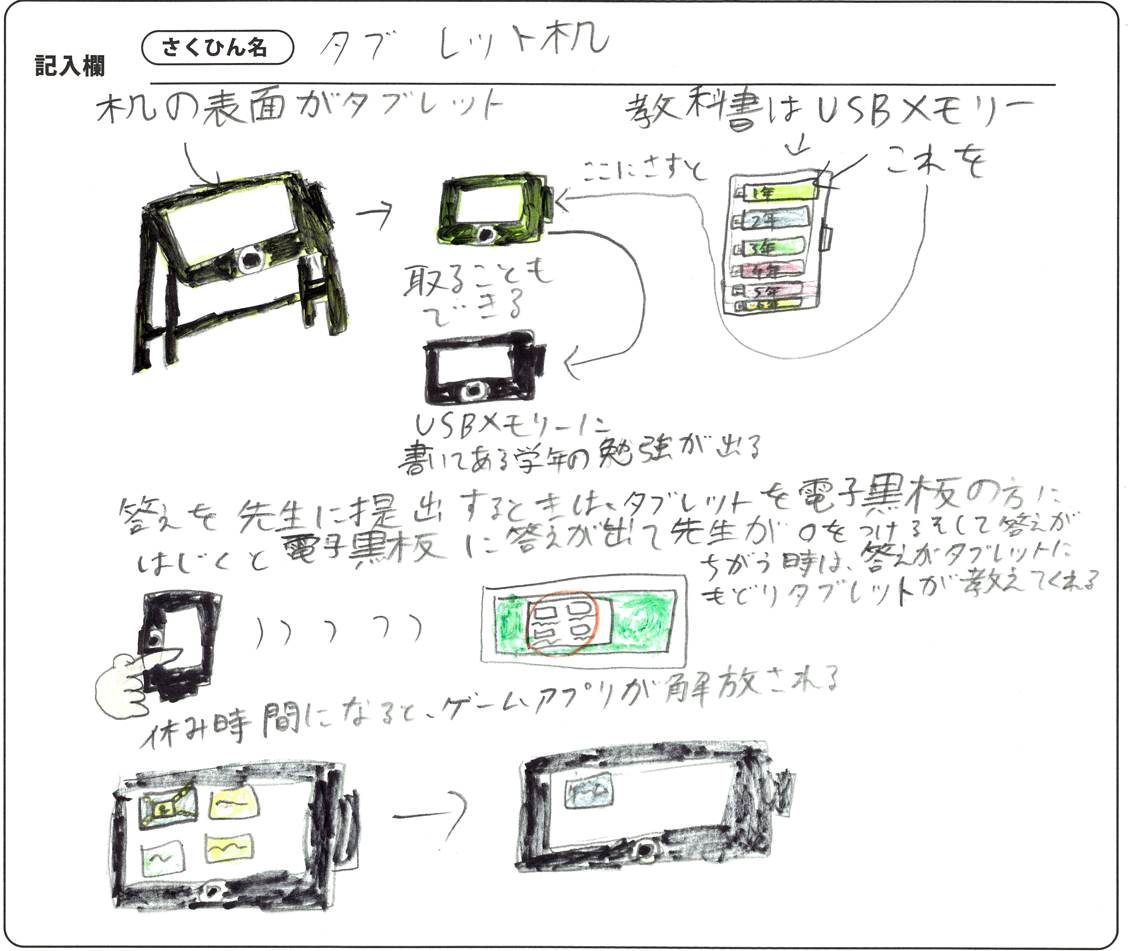 記入欄
さくひん名
タブレット机
机の表面がタブレット
教科書はUSBメモリー
ここにさすと
これを
1年
2年
3年
4年
5年
6年
取ることも
できる
USBメモリーに
書いてある学年の勉強が出る
答えを先生に提出するときは、タブレットを電子黒板の方に
はじくと電子黒板に答えが出て先生が〇をつけるそして答えが
ちがう時は、答えがタブレットに
もどりタブレットが教えてくれる
休み時間になると、ゲームアプリが解放される